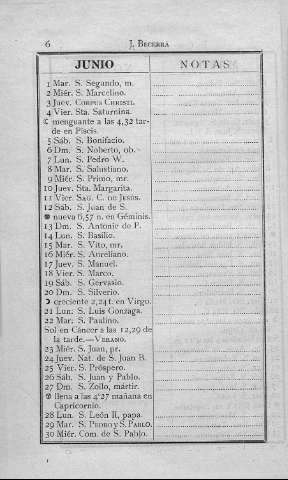 6 J. Becerra
JUNIO NOTAS
1 Mar. S. Segundo, m.
2 Miér. S. Marcelino.
3 Juev. Corpus Christi.
4 Vier. Sta. Saturnina.
☾ menguante a las 4,32 tar-
de en Piscis.
5 Sáb. S. Bonifacio.
6 Dm. S. Noberto, ob.
7 Lun. S. Pedro W.
8 Mar. S. Salustiano.
9 Miér. S. Primo, mr.
10 Juev. Sta. Margarita.
11 Vier. Sag. C. de Jesús.
12 Sáb. S. Juan de S.
nueva 6,57 n. en Géminis.
13 Dm. S. Antonio de P.
14 Lun. S. Basilio.
15 Mar. S. Vito, mr.
16 Miér. S. Aureliano.
17 Juev. S. Manuel.
18 Vier. S. Marco.
19 Sáb. S. Gervasio.
20 Dm. S. Silverio.
☽ creciente 2,24 t. en Virgo.
21 Lun. S. Luis Gonzaga.
22 Mar. S. Paulino.
Sol en Cáncer a las 12,29 de
la tarde.—Verano.
23 Miér. S. Juan, pr.
24 Juev. Nat. de S. Juan B.
25 Vier. S. Próspero.
26 Sáb. S. Juan y Pablo.
27 Dm. S. Zoilo, mártir.
llena a las 4'27 mañana en
Capricornio.
28 Lun. S. León II, papa
29 Mar. S. Pedro y S. Pablo.
30 Miér. Com. de S. Pablo.